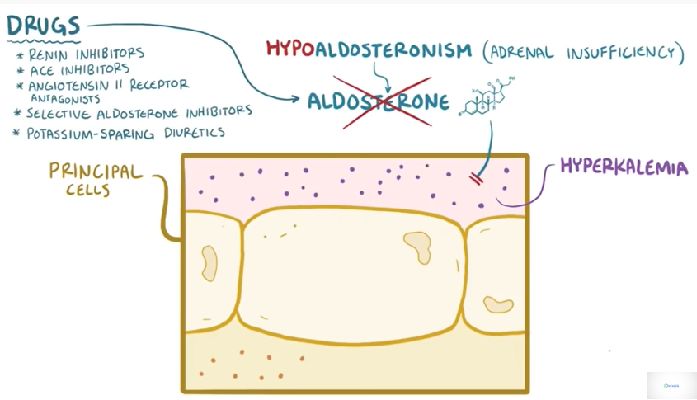 DRUGS
* RENIN INHIBITORS
* ACE INHIBITORS
* ANGIOTENSIN II RECEPTOR
ANTAGONISTS
* SELECTIVE ALDOSTERONE INHIBITORS
* POTASSIUM-SPARING DIURETICS
HYPOALDOSTERONISM (ADRENAL INSUFFICIENCY)
ALDOSTERONE
PRINCIPAL
CELLS
HYPERKALEMIA